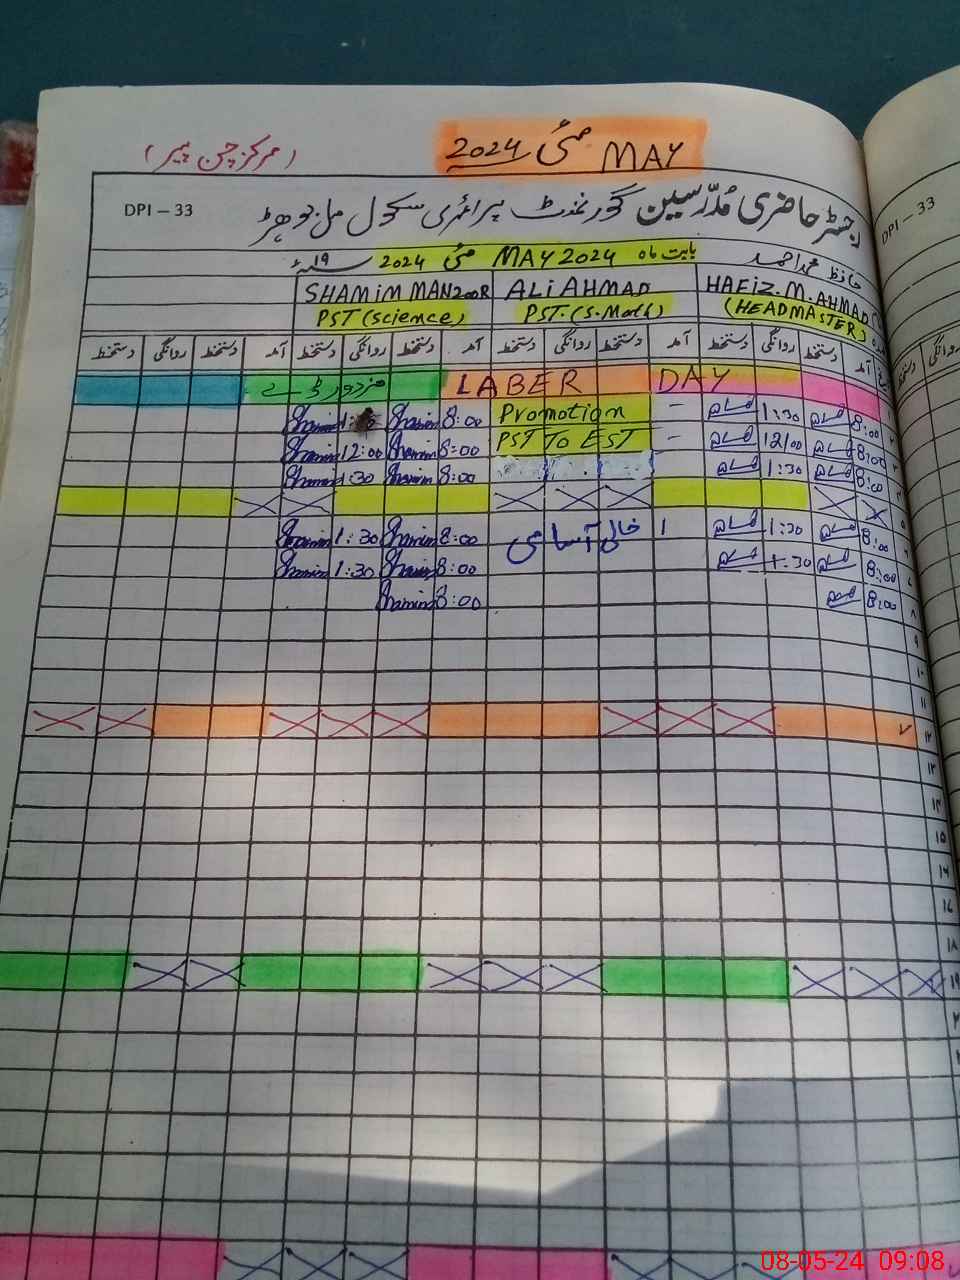 مئی 2024 MAY
(مرکز چن پیر)
DPI – 33
رجسٹر حاضری مُدرّسین گورنمنٹ پرائمری سکول
DPI – 33
بابت ماہ MAY 2024 مئی 2024 ۱۹
حافظ محمد احمد
HAFIZ.M.AHMAD
ALI AHMAD
SHAMIM MANZOOR
(HEADMASTER)
PST.(S.Math)
PST(Science)
آمد دستخط روانگی دستخط آمد دستخط روانگی دستخط آمد دستخط روانگی دستخط آمد دستخط روانگی دستخط
مزدور ڈے LABER DAY
8:00 1:30 – Promotion 8:00 Shamim Shamim
8:00 12:00 – PST To EST 8:00 Shamim 12:00 Shamim
8:00 1:30 8:00 Shamim 1:30 Shamim
8:00 1:30 1 خالی آسامی 8:00 Shamim 1:30 Shamim
8:00 1:30 8:00 Shamim 1:30 Shamim
8:00 8:00 Shamim
۸
۹
۱۰
۱۱
۱۲
۱۳
۱۴
۱۵
۱۶
۱۷
۱۸
۱۹
08-05-24 09:08